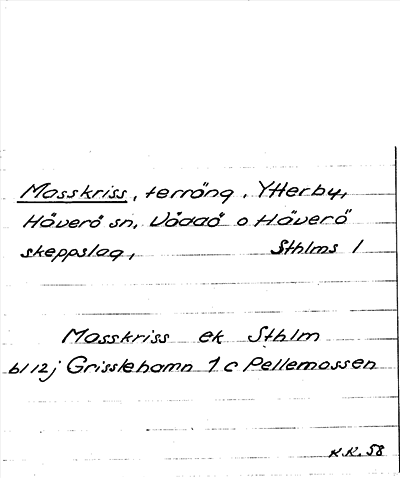 Mosskriss, terräng, Ytterby,
Häverö sn, Väddö o Häverö
skeppslag, Sthlms l
Mosskriss ek Sthlm
bl 12j Grisslehamn 1c Pellemossen
K.K. 58